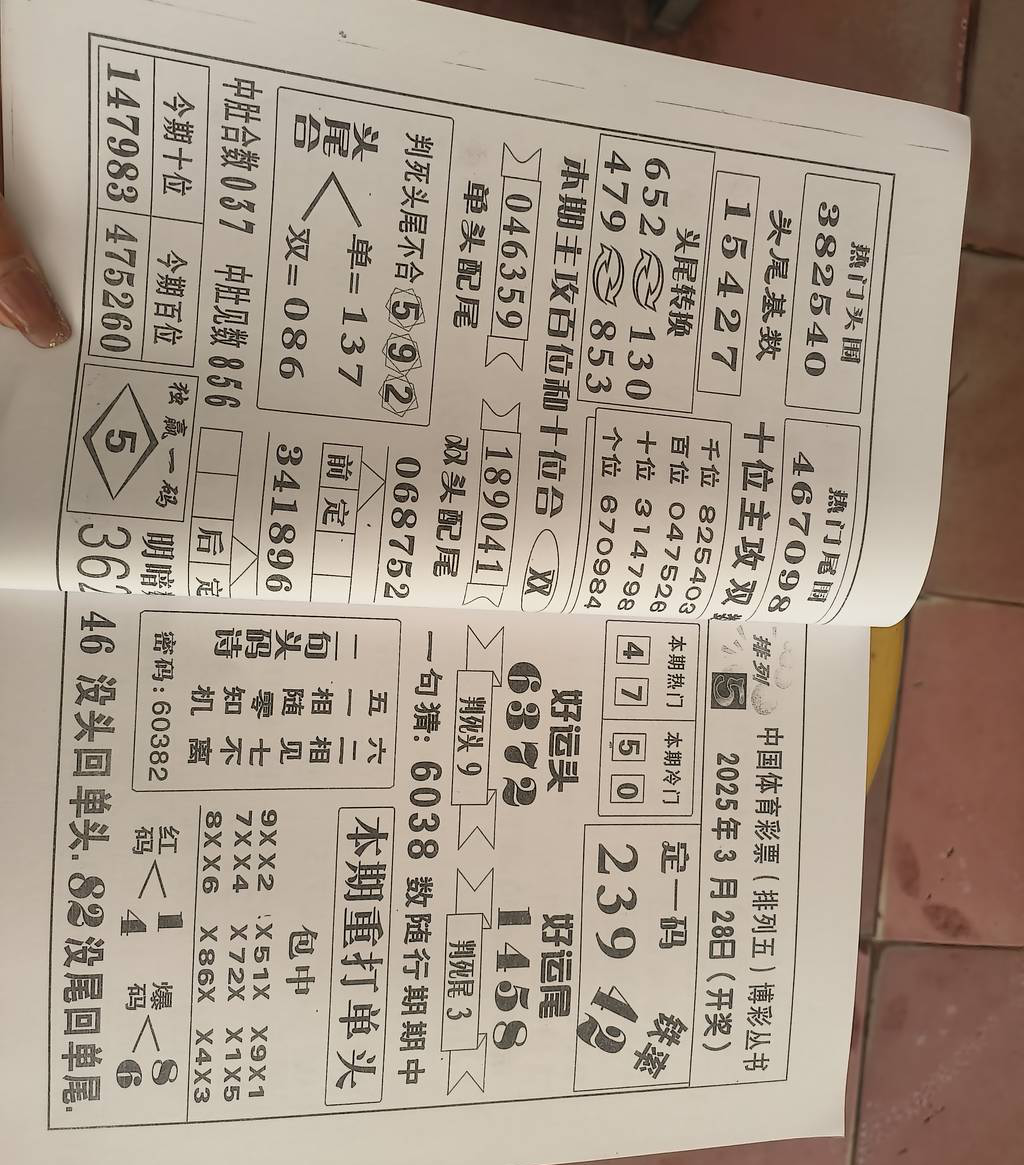 热门头围
382540
热门尾围
467098
头尾基数
15427
十位主攻双
头尾转换
652 130
479 853
千位 825403
百位 047526
十位 314798
个位 670984
本期主攻百位和十位合 双
046359
189041
单头配尾
双头配尾
判死头尾不合 5 9 2
头尾合
单=137
双=086
068752
前定
341896
后定
中肚合数037 中肚见数856
今期十位
今期百位
147983
475260
独赢一码
5
明暗
362
排列5
中国体育彩票(排列五)博彩丛书
2025年3月28日(开奖)
本期热门
本期冷门
4 7
5 0
定一码
239
铁率
42
好运头
6372
好运尾
1458
判死头 9
判死尾 3
一句猜: 6038 数随行期期中
二句头码诗
五一相随零知机
六二相见七不离
密码:60382
本期重打单头
包中
9XX2 X51X X9X1
7XX4 X72X X1X5
8XX6 X86X X4X3
红码
1
4
爆码
8
6
46 没头回单头. 82没尾回单尾.